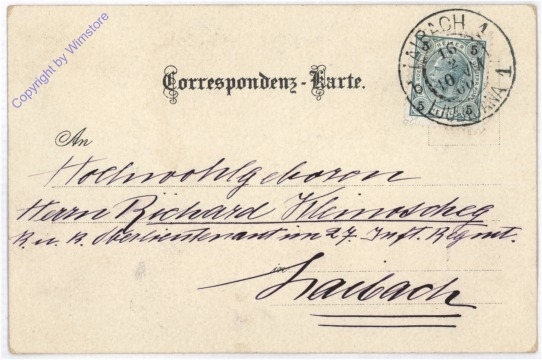 Copyright by Wimstore
LAIBACH 1
LJUBLJANA 1
5 5
5 5
Correspondenz-Karte.
An
Hochwohlgeboren
Herrn Richard Kleinoscheg
k. u. k. Oberlieutenant im 27. Inft. Regmt.
in
Laibach